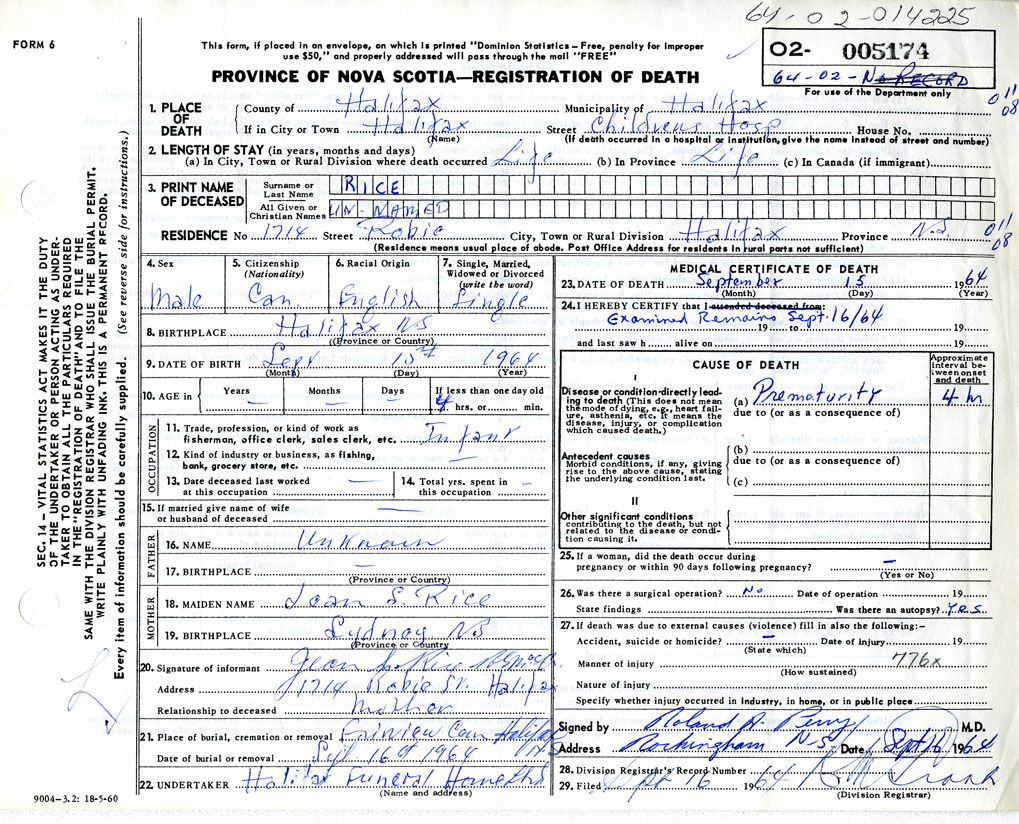 64-02-014225
FORM 6
This form, if placed in an envelope, on which is printed "Dominion Statistics – Free, penalty for improper
use $50," and properly addressed will pass through the mail "FREE"
PROVINCE OF NOVA SCOTIA—REGISTRATION OF DEATH
02- 005174
64-02-No RECORD
For use of the Department only
011
08
1. PLACE OF DEATH
County of Halifax Municipality of Halifax
If in City or Town Halifax Street Childrens Hosp House No.
(Name) (If death occurred in a hospital or institution, give the name instead of street and number)
2. LENGTH OF STAY (in years, months and days)
(a) In City, Town or Rural Division where death occurred Life (b) In Province Life (c) In Canada (if immigrant)
3. PRINT NAME OF DECEASED
Surname or Last Name RICE
All Given or Christian Names UN-NAMED
RESIDENCE No 1714 Street Robie City, Town or Rural Division Halifax Province N.S.
011
08
(Residence means usual place of abode. Post Office Address for residents in rural parts not sufficient)
4. Sex
Male
5. Citizenship (Nationality)
Can
6. Racial Origin
English
7. Single, Married, Widowed or Divorced (write the word)
Single
8. BIRTHPLACE Halifax NS
(Province or Country)
9. DATE OF BIRTH Sept 15th 1964
(Month) (Day) (Year)
10. AGE in Years Months Days If less than one day old
4 hrs. or min.
OCCUPATION
11. Trade, profession, or kind of work as
fisherman, office clerk, sales clerk, etc. Infant
12. Kind of industry or business, as fishing,
bank, grocery store, etc. —
13. Date deceased last worked
at this occupation —
14. Total yrs. spent in
this occupation —
15. If married give name of wife
or husband of deceased —
FATHER
16. NAME Unknown
17. BIRTHPLACE —
(Province or Country)
MOTHER
18. MAIDEN NAME Joan S. Rice
19. BIRTHPLACE Sydney NS
(Province or Country)
20. Signature of informant Rice
Address 1714 Robie St. Halifax
Relationship to deceased Mother
21. Place of burial, cremation or removal Fairview Cem Halifax
NS
Date of burial or removal Sept 16th 1964
22. UNDERTAKER Halifax Funeral Home Ltd
(Name and address)
9004-3.2: 18-5-60
MEDICAL CERTIFICATE OF DEATH
23. DATE OF DEATH September 15 1964
(Month) (Day) (Year)
24. I HEREBY CERTIFY that I attended deceased from:
Examined Remains Sept. 16/64
19 to 19
and last saw h alive on 19
CAUSE OF DEATH
Approximate interval between onset and death
I
Disease or condition directly leading to death (This does not mean the mode of dying, e.g., heart failure, asthenia, etc. It means the disease, injury, or complication which caused death.)
(a) Prematurity 4 hr
due to (or as a consequence of)
Antecedent causes
Morbid conditions, if any, giving rise to the above cause, stating the underlying condition last.
(b)
due to (or as a consequence of)
(c)
II
Other significant conditions
contributing to the death, but not related to the disease or condition causing it.
25. If a woman, did the death occur during
pregnancy or within 90 days following pregnancy? —
(Yes or No)
26. Was there a surgical operation? No Date of operation 19
State findings Was there an autopsy? Yes
27. If death was due to external causes (violence) fill in also the following:-
Accident, suicide or homicide? — Date of injury 19
(State which)
Manner of injury 776x
(How sustained)
Nature of injury
Specify whether injury occurred in industry, in home, or in public place
Signed by Roland A. Perry M.D.
Address Rockingham N.S. Date Sept 16 1964
28. Division Registrar's Record Number
29. Filed Sept 16 1964
(Division Registrar)
SEC. 14 – VITAL STATISTICS ACT MAKES IT THE DUTY
OF THE UNDERTAKER OR PERSON ACTING AS UNDER-
TAKER TO OBTAIN ALL THE PARTICULARS REQUIRED
IN THE "REGISTRATION OF DEATH" AND TO FILE THE
SAME WITH THE DIVISION REGISTRAR WHO SHALL ISSUE THE BURIAL PERMIT.
WRITE PLAINLY WITH UNFADING INK. THIS IS A PERMANENT RECORD.
Every item of information should be carefully supplied. (See reverse side for instructions.)